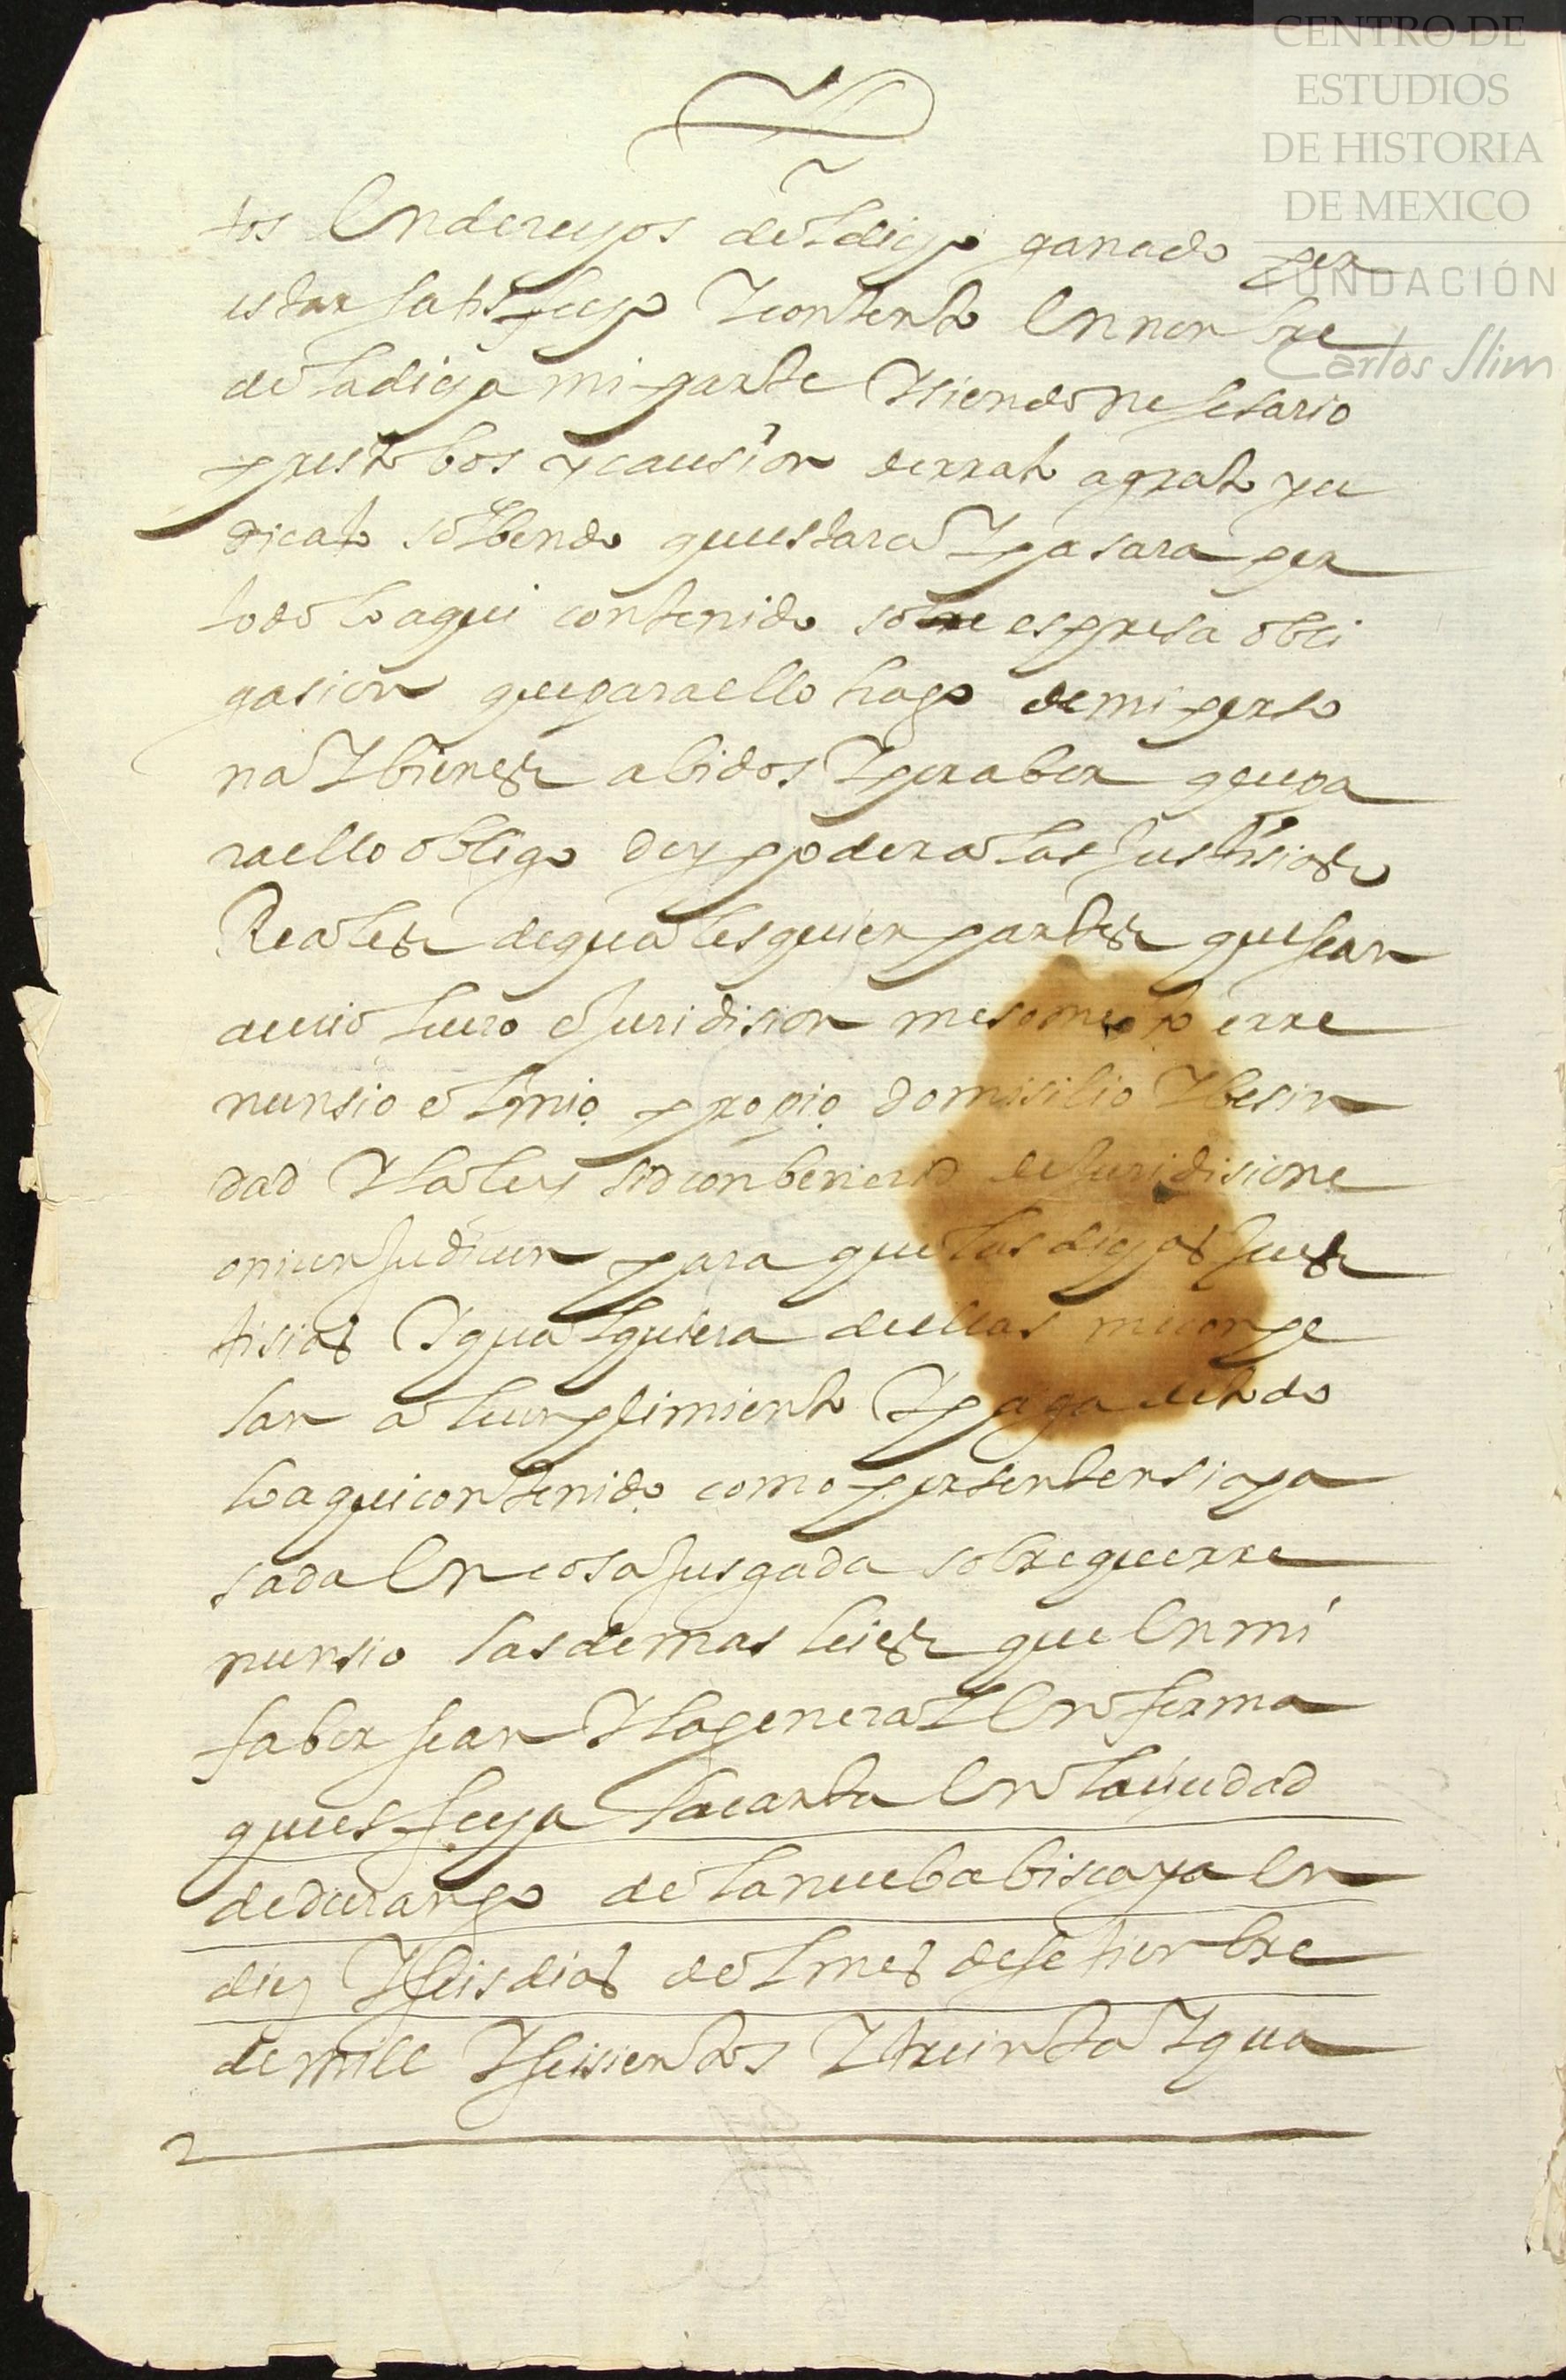 CENTRO DE
ESTUDIOS
DE HISTORIA
DE MEXICO
FUNDACIÓN
Carlos Slim
tos En derechos del dicho ganado por
estar satisfecho Y contento En nonbre
de la dicha mi parte Y siendo nesesario
presto bos y causion de rrato agrato ju
dicato solbendo que estara Y pasara por
todo lo aqui contenido sobre espresa obli
gasion que para ello hago de mi perso
na Y bienes abidos Y por aber que pa
ra ello obligo doy poder a las Justisias
Reales de quales quier partes que sean
a cuio fuero e Juridision me someto e rre
nunsio el mio propio domisilio Y besin
dad Y la ley sid conbenerid de Juridisione
oniun Judicun para que las dichas Jus
tisias Y qualquiera de ellas me conpe
lan a el cunplimiento Y paga de todo
lo aqui contenido como por sentensia pa
sada En cosa Jusgada sobre que rre
nunsio las demas leies que En mi
fabor sean Y la general En forma
que es fecha la carta En la ciudad
de durango de la nueba biscaya En
diez Y seis dias del mes de setienbre
de mill Y seisientos Y treinta Y qua